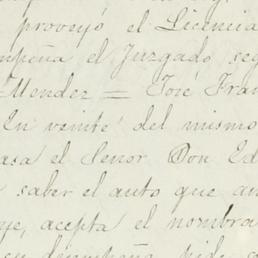 proveyó el Licencia
mpeña el Juzgado seg
Mendez = José Fran
En veinte del mismo
asa el Señor Don Ed
saber el auto que an
ye, acepta el nombra
su desempeña pide co